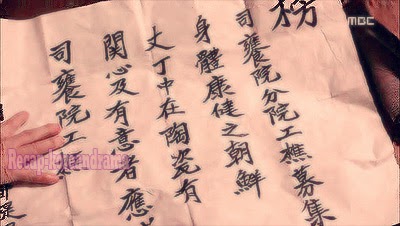 MBC
司饔院分院工樵募集
身體康健之朝鮮
丈丁中在陶瓷有
関心及有意者應
司饔院工樵
Recap-koreandrama